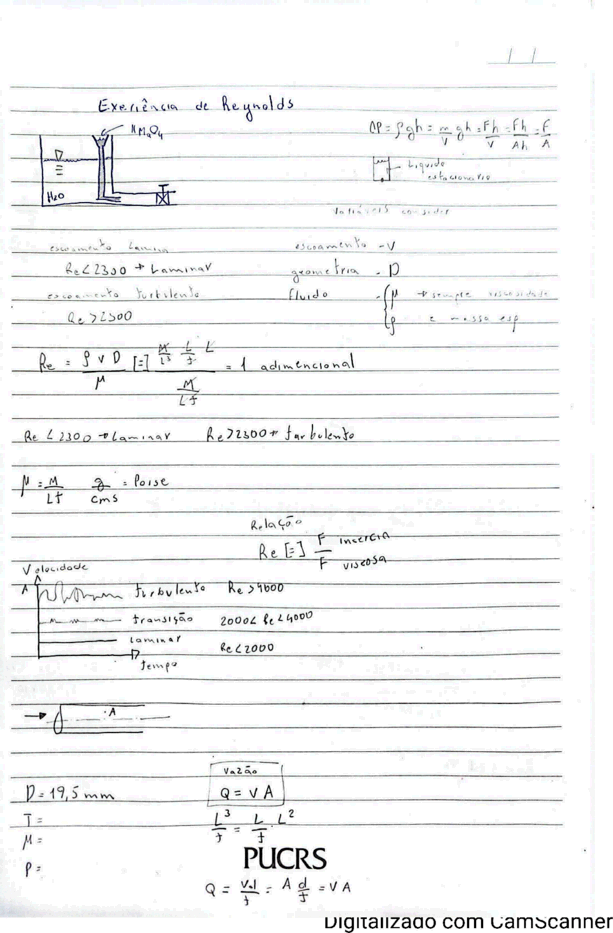 Exeriência de Reynolds
KMnO4
ΔP = ρgh = m/V gh = Fh/V = Fh/Ah = F/A
H2O
Liquido
estacionario
Variáveis consider
escoamento Lamina
escoamento - V
Re < 2300 → Laminar
geometria - D
escoamento turbulento
fluido - { μ → sempre viscosidade
Re > 2300
ρ e massa esp
Re = ρ v D / μ [=] M/L³ L/t L / M/Lt = 1 adimencional
Re < 2300 → Laminar Re > 2300 → turbulento
μ = M/Lt g/cms = Poise
Relação
Re [=] F insercia / F viscosa
Velocidade
A turbulento Re > 4000
transição 2000 < Re < 4000
Laminar Re < 2000
tempo
A
Vazão
D = 19,5 mm
Q = v A
T =
L³/t = L/t . L²
M =
PUCRS
ρ =
Q = Vol/t = A d/t = V A
Digitalizado com CamScanner